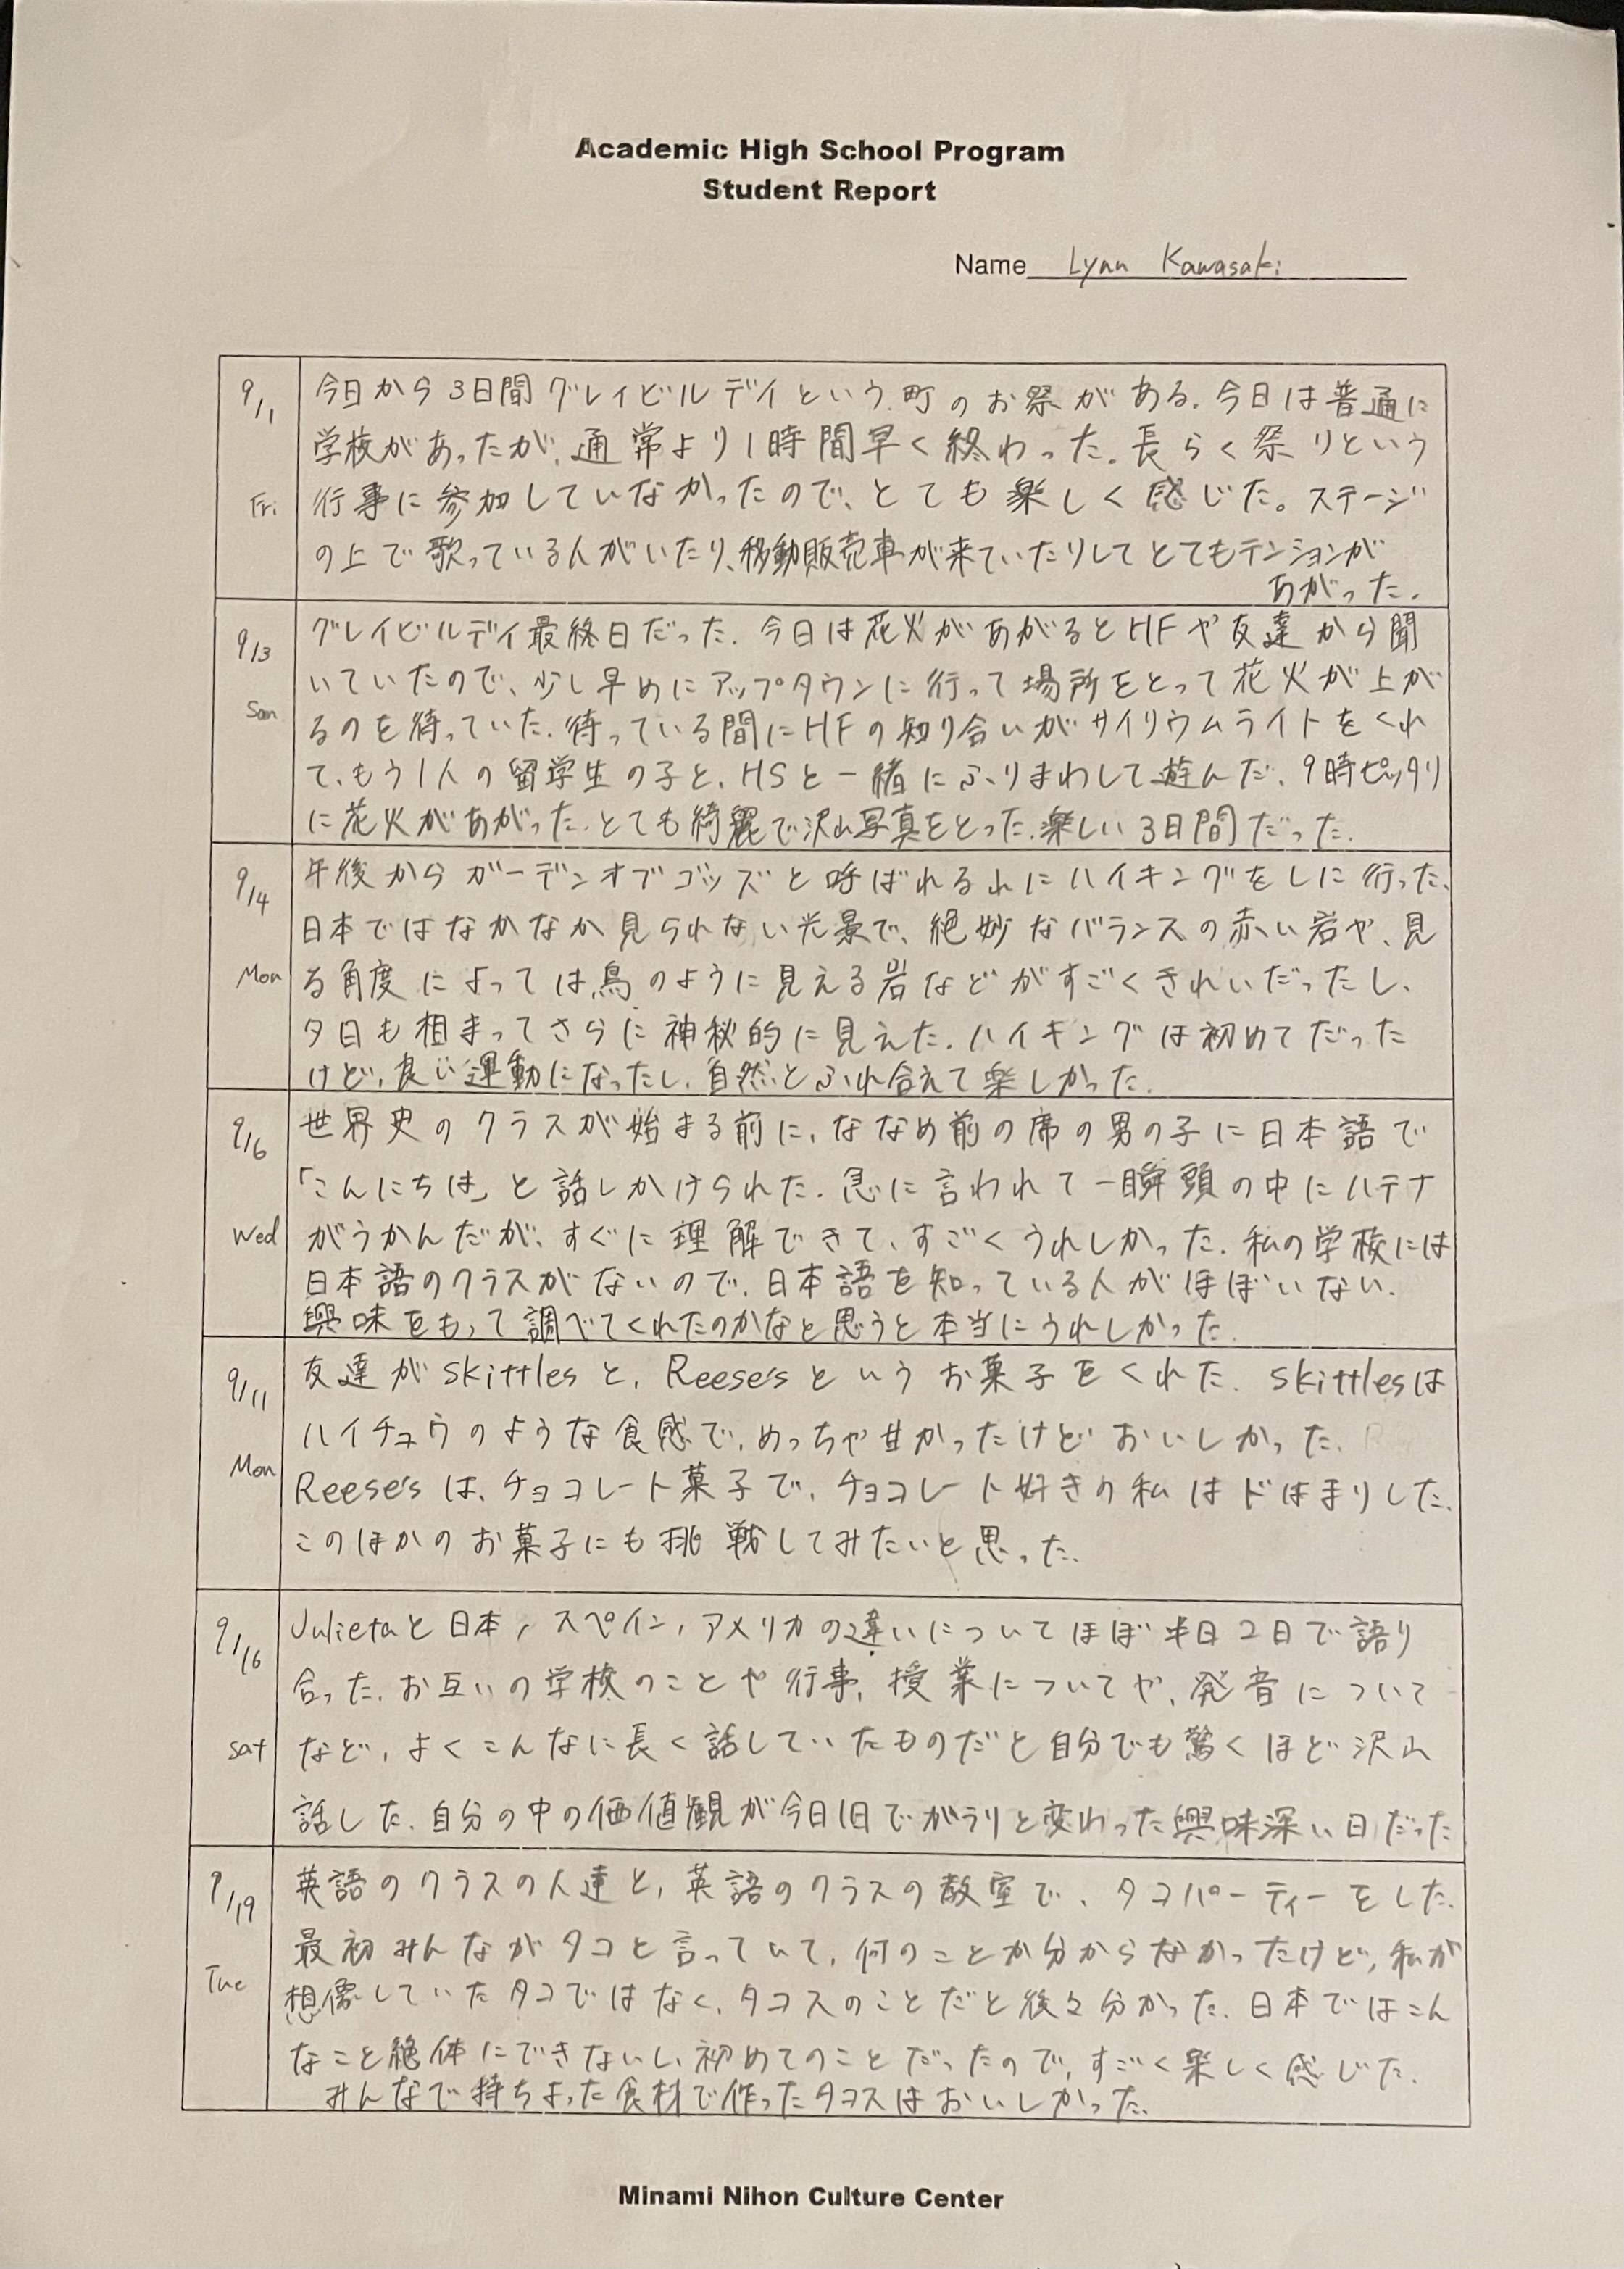 Academic High School Program
Student Report
Name Lynn Kawasaki
9/1
Fri
今日から3日間グレイビルデイという町のお祭がある。今日は普通に
学校があったが、通常より1時間早く終わった。長らく祭りという
行事に参加していなかったので、とても楽しく感じた。ステージ
の上で歌っている人がいたり、移動販売車が来ていたりしてとてもテンションが
あがった。
9/3
Sun
グレイビルデイ最終日だった。今日は花火があがるとHFや友達から聞
いていたので、少し早めにアップタウンに行って場所をとって花火が上が
るのを待っていた。待っている間にHFの知り合いがサイリウムライトをくれ
て、もう1人の留学生の子と、HSと一緒にふりまわして遊んだ。9時ピッタリ
に花火があがった。とても綺麗で沢山写真をとった。楽しい3日間だった。
9/4
Mon
午後からガーデンオブゴッズと呼ばれるれにハイキングをしに行った。
日本ではなかなか見られない光景で、絶妙なバランスの赤い岩や、見
る角度によっては鳥のように見える岩などがすごくきれいだったし、
夕日も相まってさらに神秘的に見えた。ハイキングは初めてだった
けど、良い運動になったし、自然とふれ合えて楽しかった。
9/6
Wed
世界史のクラスが始まる前に、ななめ前の席の男の子に日本語で
「こんにちは」と話しかけられた。急に言われて一瞬頭の中にハテナ
がうかんだが、すぐに理解できて、すごくうれしかった。私の学校には
日本語のクラスがないので、日本語を知っている人がほぼいない。
興味をもって調べてくれたのかなと思うと本当にうれしかった。
9/11
Mon
友達がSkittlesと、Reese'sというお菓子をくれた。Skittlesは
ハイチュウのような食感で、めっちゃ甘かったけどおいしかった。
Reese'sは、チョコレート菓子で、チョコレート好きの私はドはまりした。
このほかのお菓子にも挑戦してみたいと思った。
9/16
Sat
Julietaと日本、スペイン、アメリカの違いについてほぼ半日2日で語り
合った。お互いの学校のことや行事、授業についてや、発音について
など、よくこんなに長く話していたものだと自分でも驚くほど沢山
話した。自分の中の価値観が今日1日でがラリと変わった興味深い日だった
9/19
Tue
英語のクラスの人達と、英語のクラスの教室で、タコパーティーをした。
最初みんながタコと言っていて、何のことか分からなかったけど、私が
想像していたタコではなく、タコスのことだと後々分かった。日本ではこん
なこと絶体にできないし、初めてのことだったので、すごく楽しく感じた。
みんなで持ちよった食材で作ったタコスはおいしかった。
Minami Nihon Culture Center